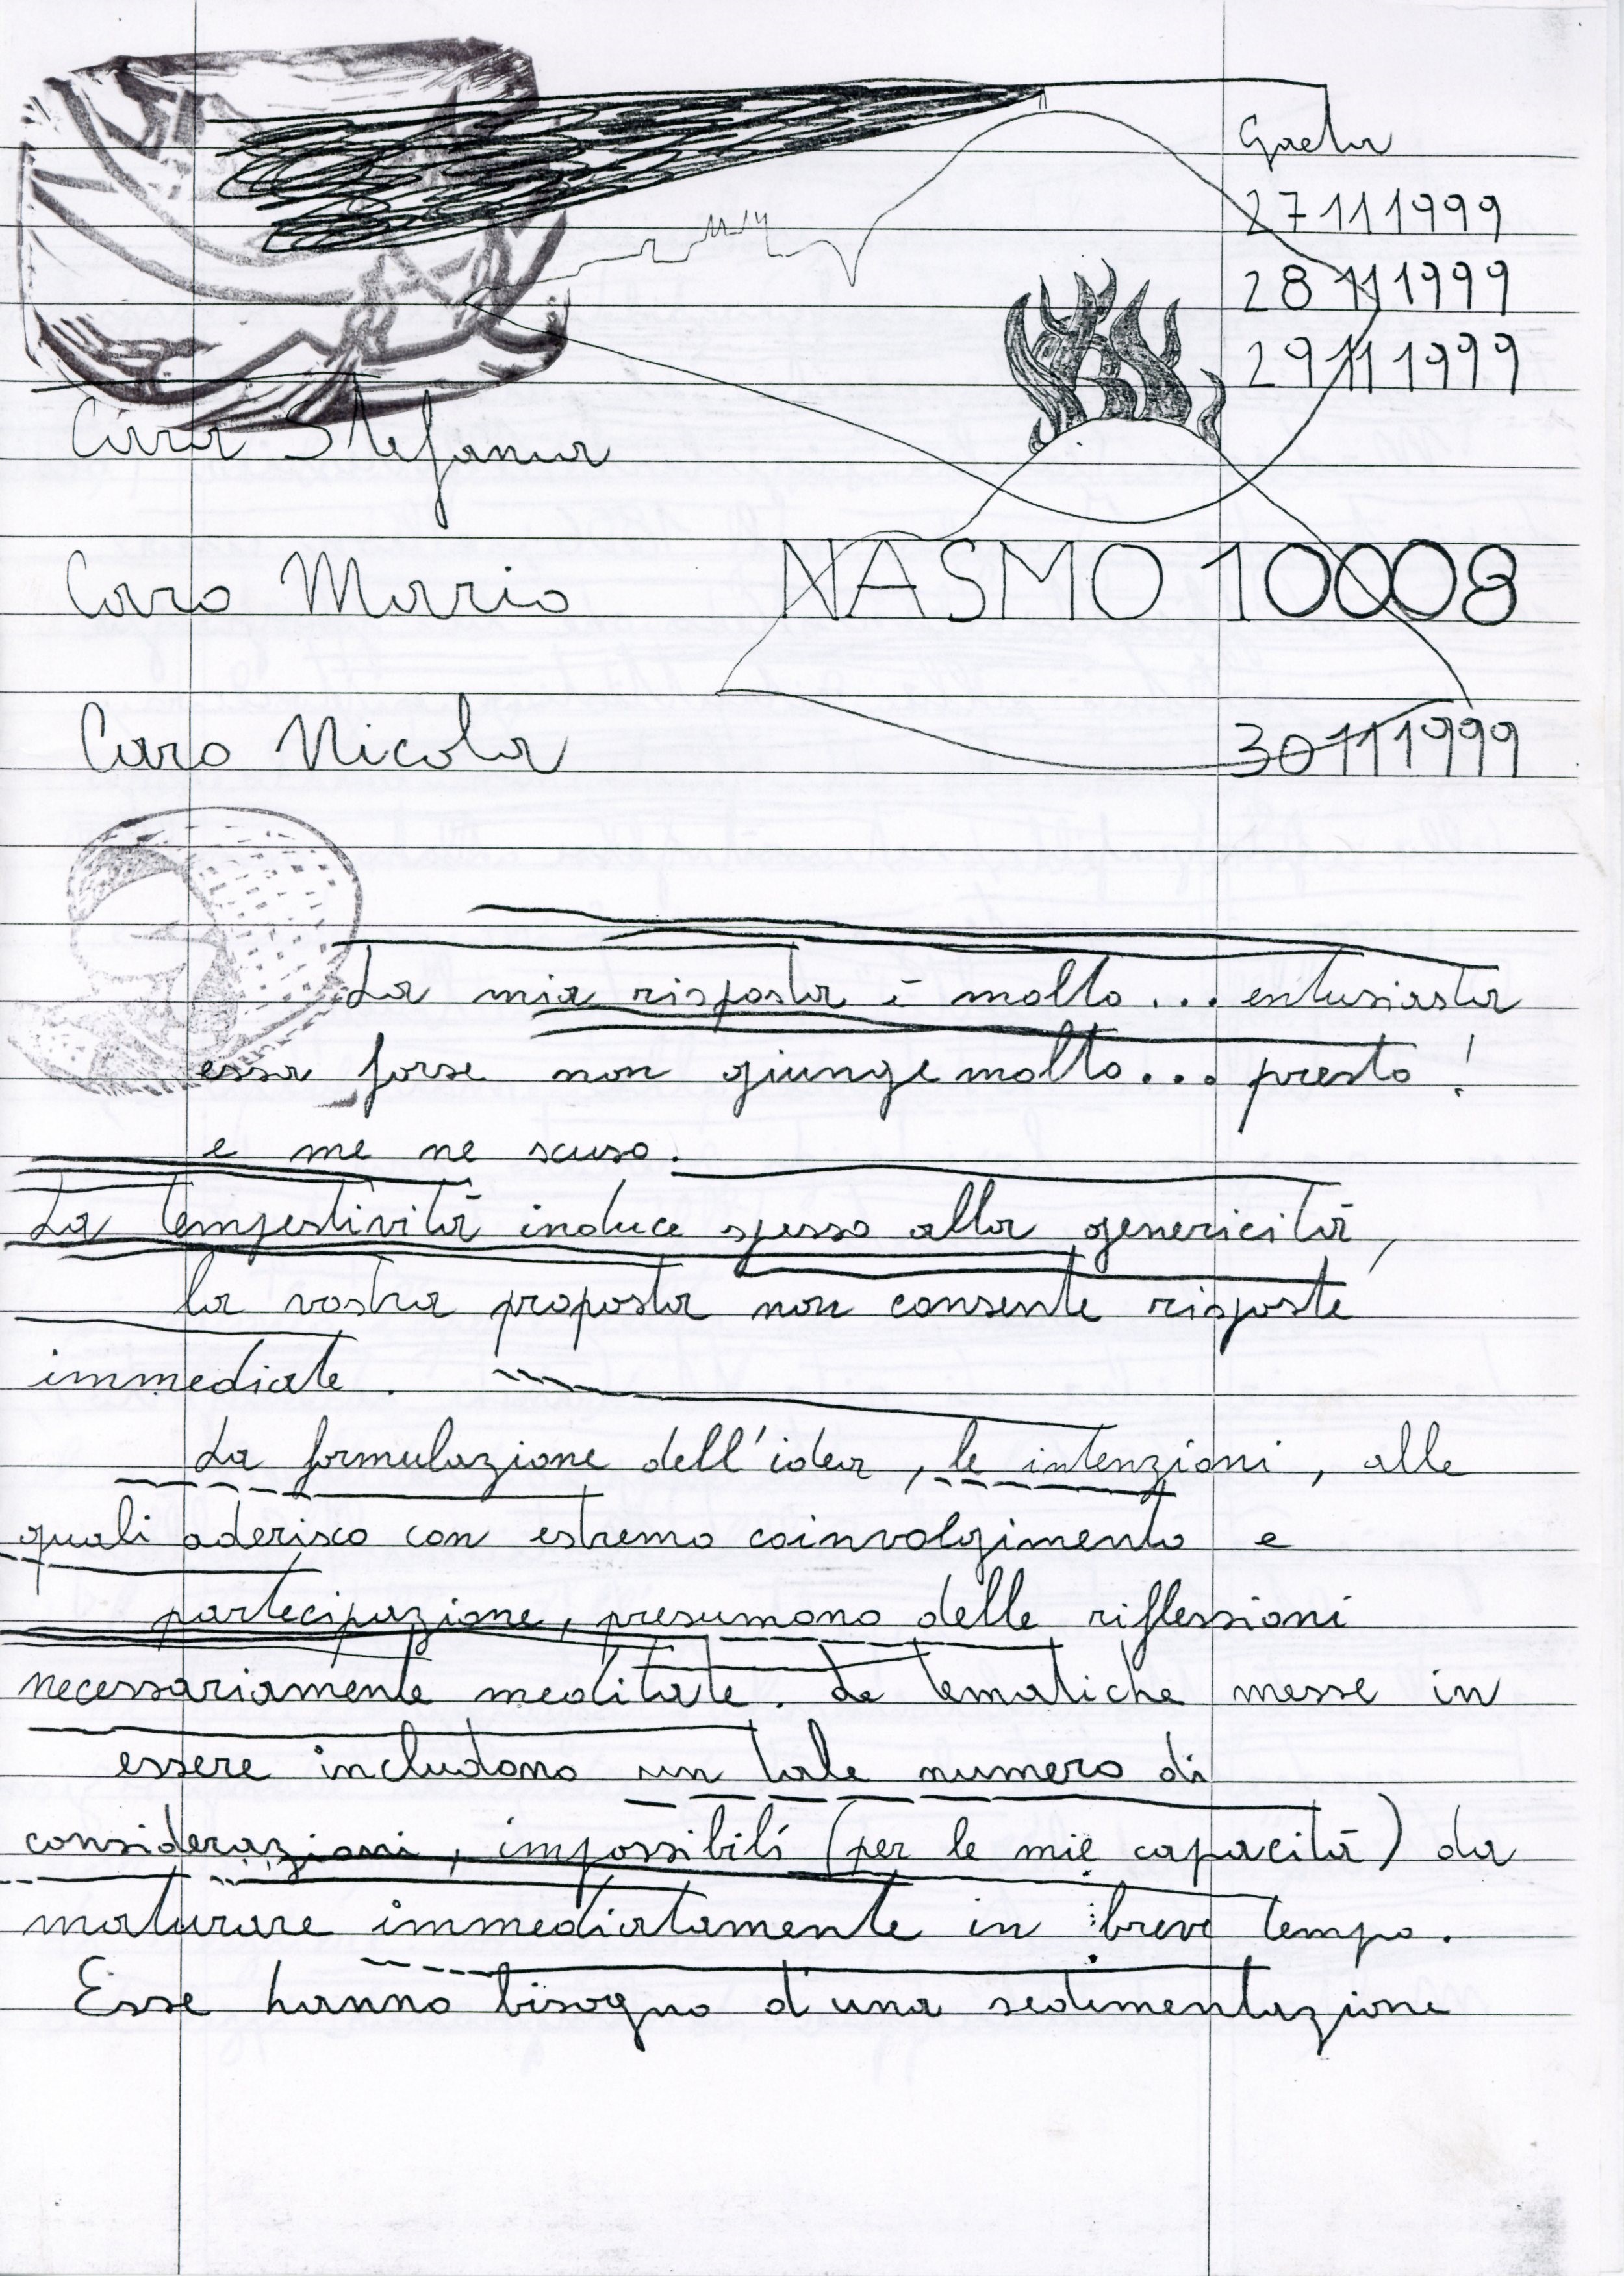 Gaeta
27111999
28111999
29111999
Cara Stefania
Caro Mario
NASMO 10008
Caro Nicola
30111999
La mia risposta è molto... entusiasta
essa forse non giunge molto... presto!
e me ne scuso.
La tempestività induce spesso alla genericità,
la vostra proposta non consente risposte
immediate.
La formulazione dell'idea, le intenzioni, alle
quali aderisco con estremo coinvolgimento e
partecipazione, presumono delle riflessioni
necessariamente meditate. Le tematiche messe in
essere includono un tale numero di
considerazioni, impossibili (per le mie capacità) da
maturare immediatamente in breve tempo.
Esse hanno bisogno d'una sedimentazione